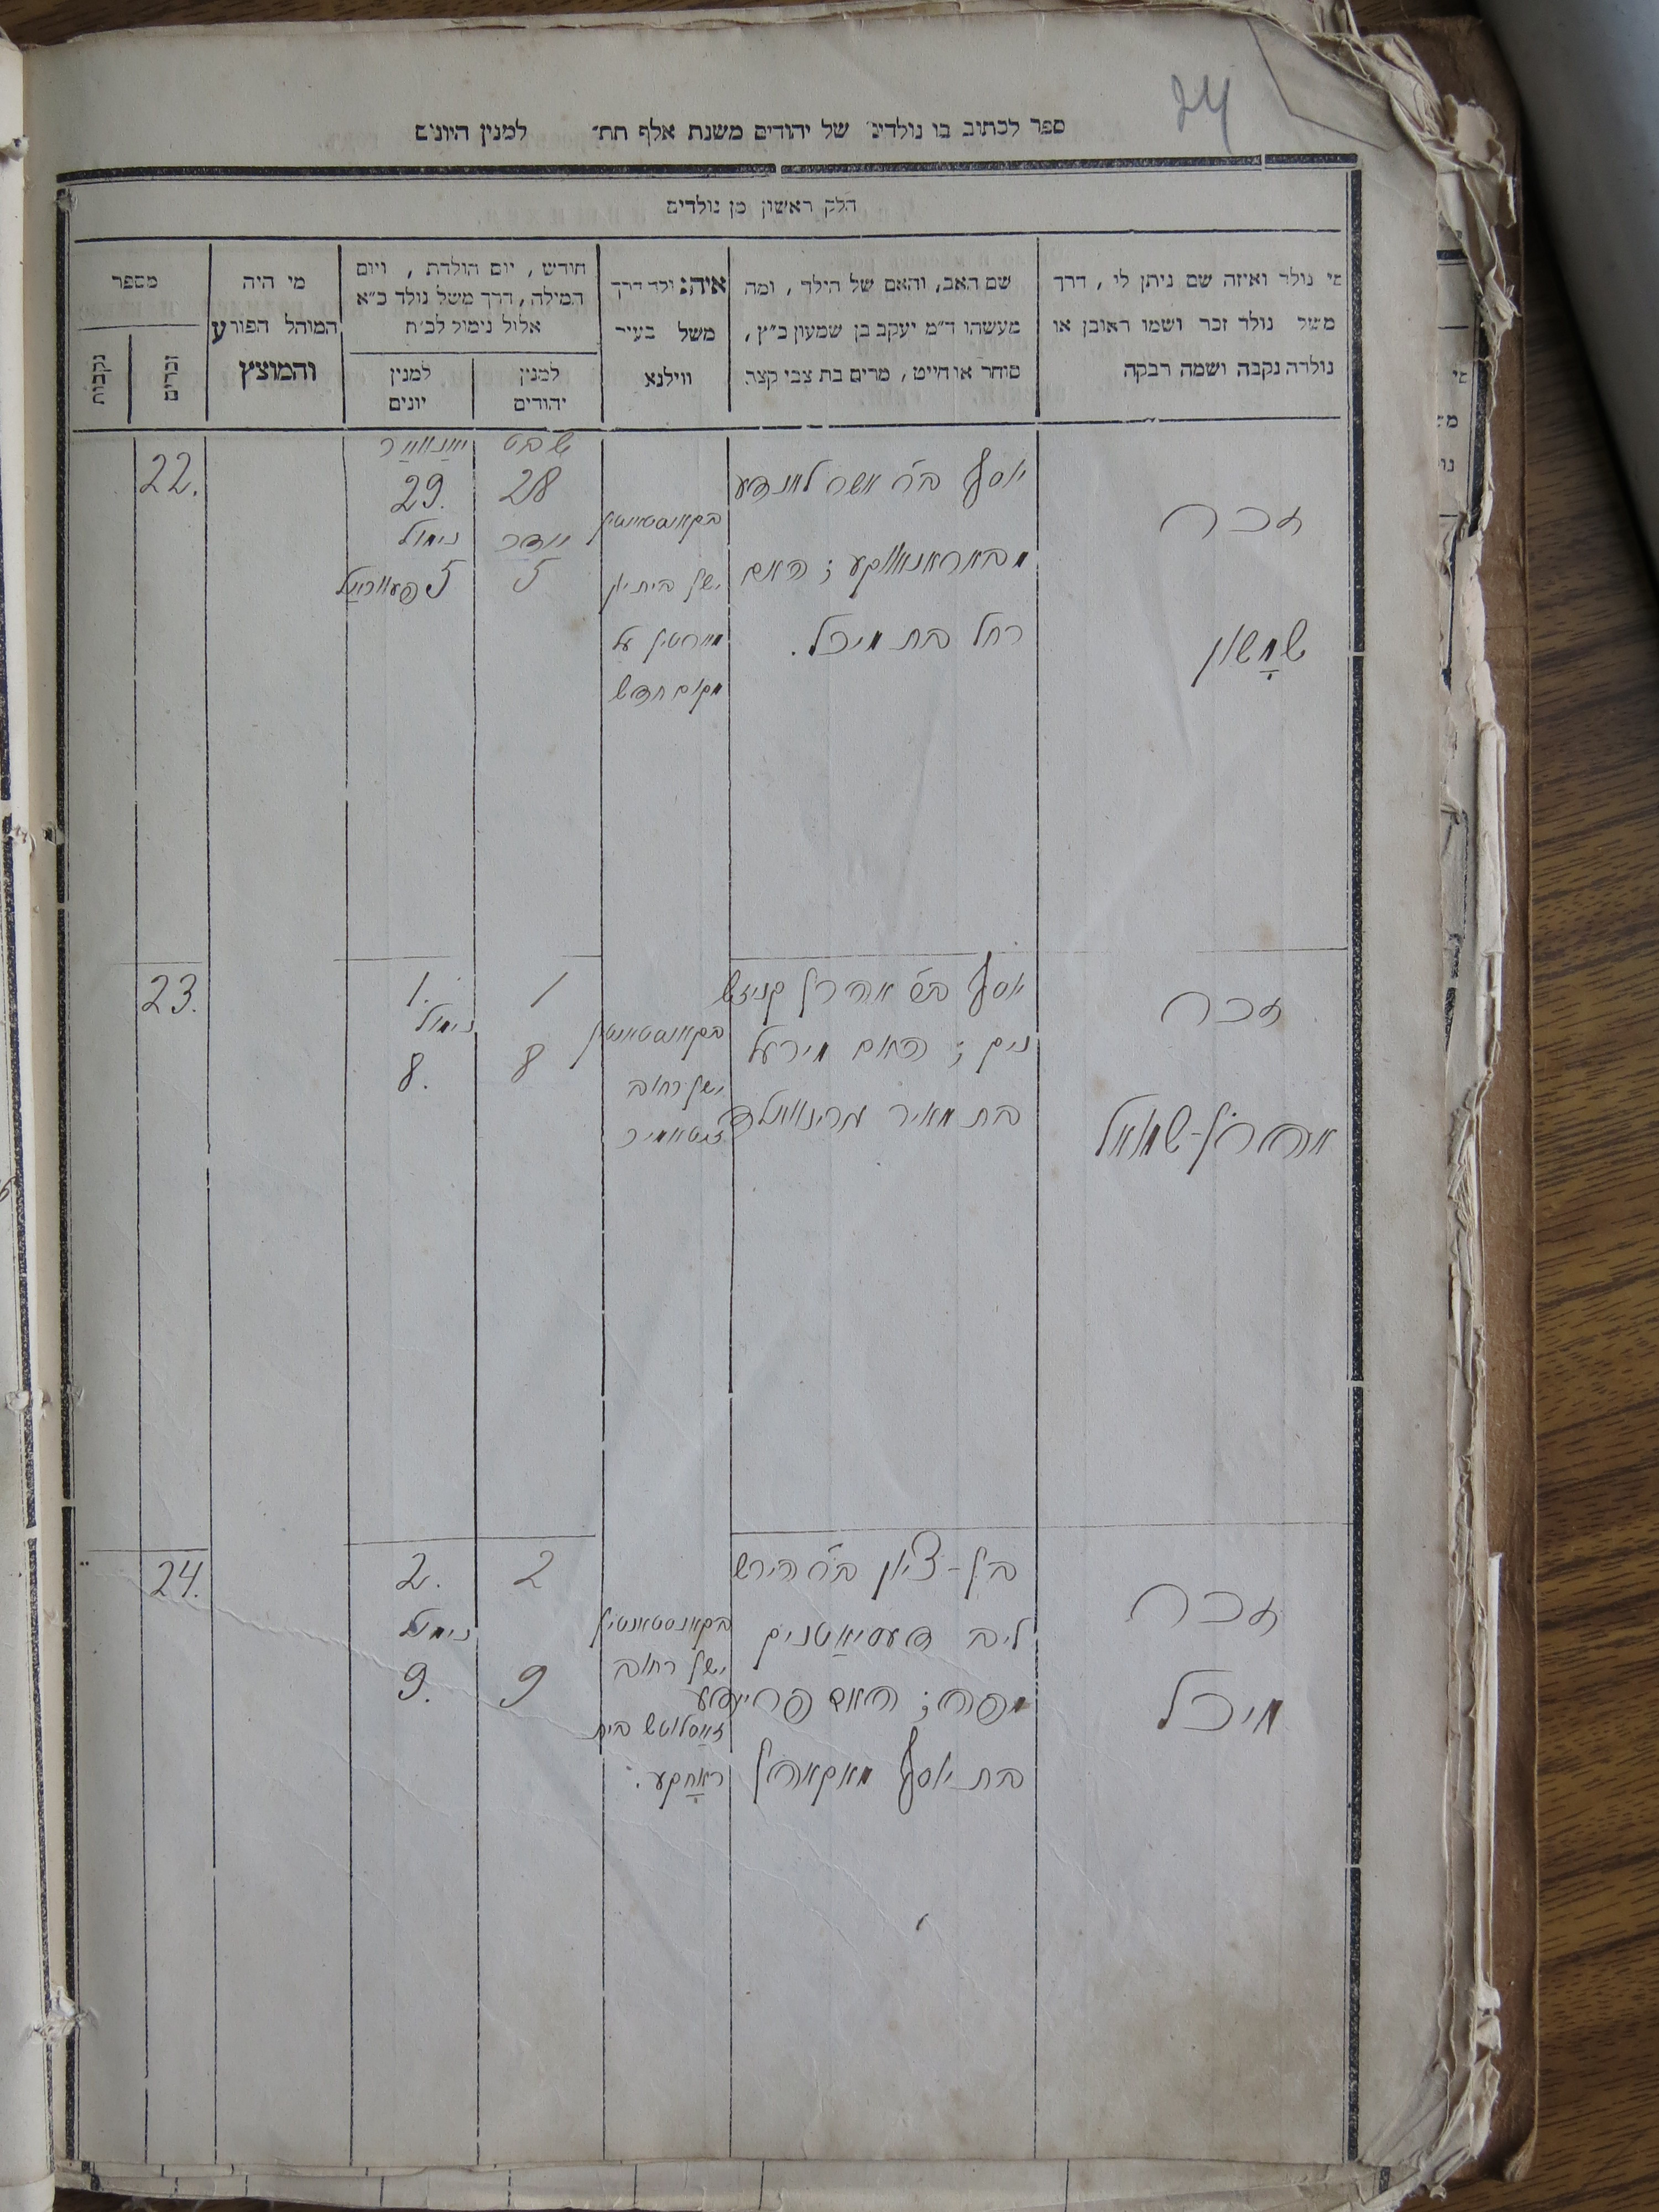 24
ספר לכתוב בו נולדים של יהודים משנת אלף תת״ למנין היונים
חלק ראשון מן נולדים
מי נולד ואיזה שם ניתן לו , דרך
משל נולד זכר ושמו ראובן או
נולדה נקבה ושמה רבקה
שם האב, והאם של הילד , ומה
מעשהו ד״מ יעקב בן שמעון כ״ץ ,
סוחר או חייט , מרים בת צבי קצב
איה: ילד דרך
משל בעיר
ווילנא
חודש , יום הולדת , ויום
המילה , דרך משל נולד כ״א
אלול נימול לכ״ח
למנין
יהודים
למנין
יונים
מי היה
המוהל הפורע
והמוצץ
מספר
זכרים
נקבות
זכר
שמשון
יוסף ב״ר אשר לאנדיע
מבאראנאווקע ; האם
רחל בת מיכל .
בקאנסטאנטין
ישן בית
על
מקום חדש
שבט
28
5
יאנואר
29.
נימול
5 פעווריאל
22.
זכר
אהרן-שמואל
יוסף ב״ר אהרן קניזש
ניק ; האם מירעל
בת מאיר גרינוואלד
בקאנסטאנטין
ישן רחוב
זיטאמיר
1
8
1.
נימול
8.
23.
זכר
מיכל
בן-ציון ב״ר הירש
ליב דעסיאטניק
מפה ; האם פריידע
בת יוסף מאקארון
בקאנסטאנטין
ישן רחוב
זאסלוטש בית
2
9
2.
נימול
9.
24.